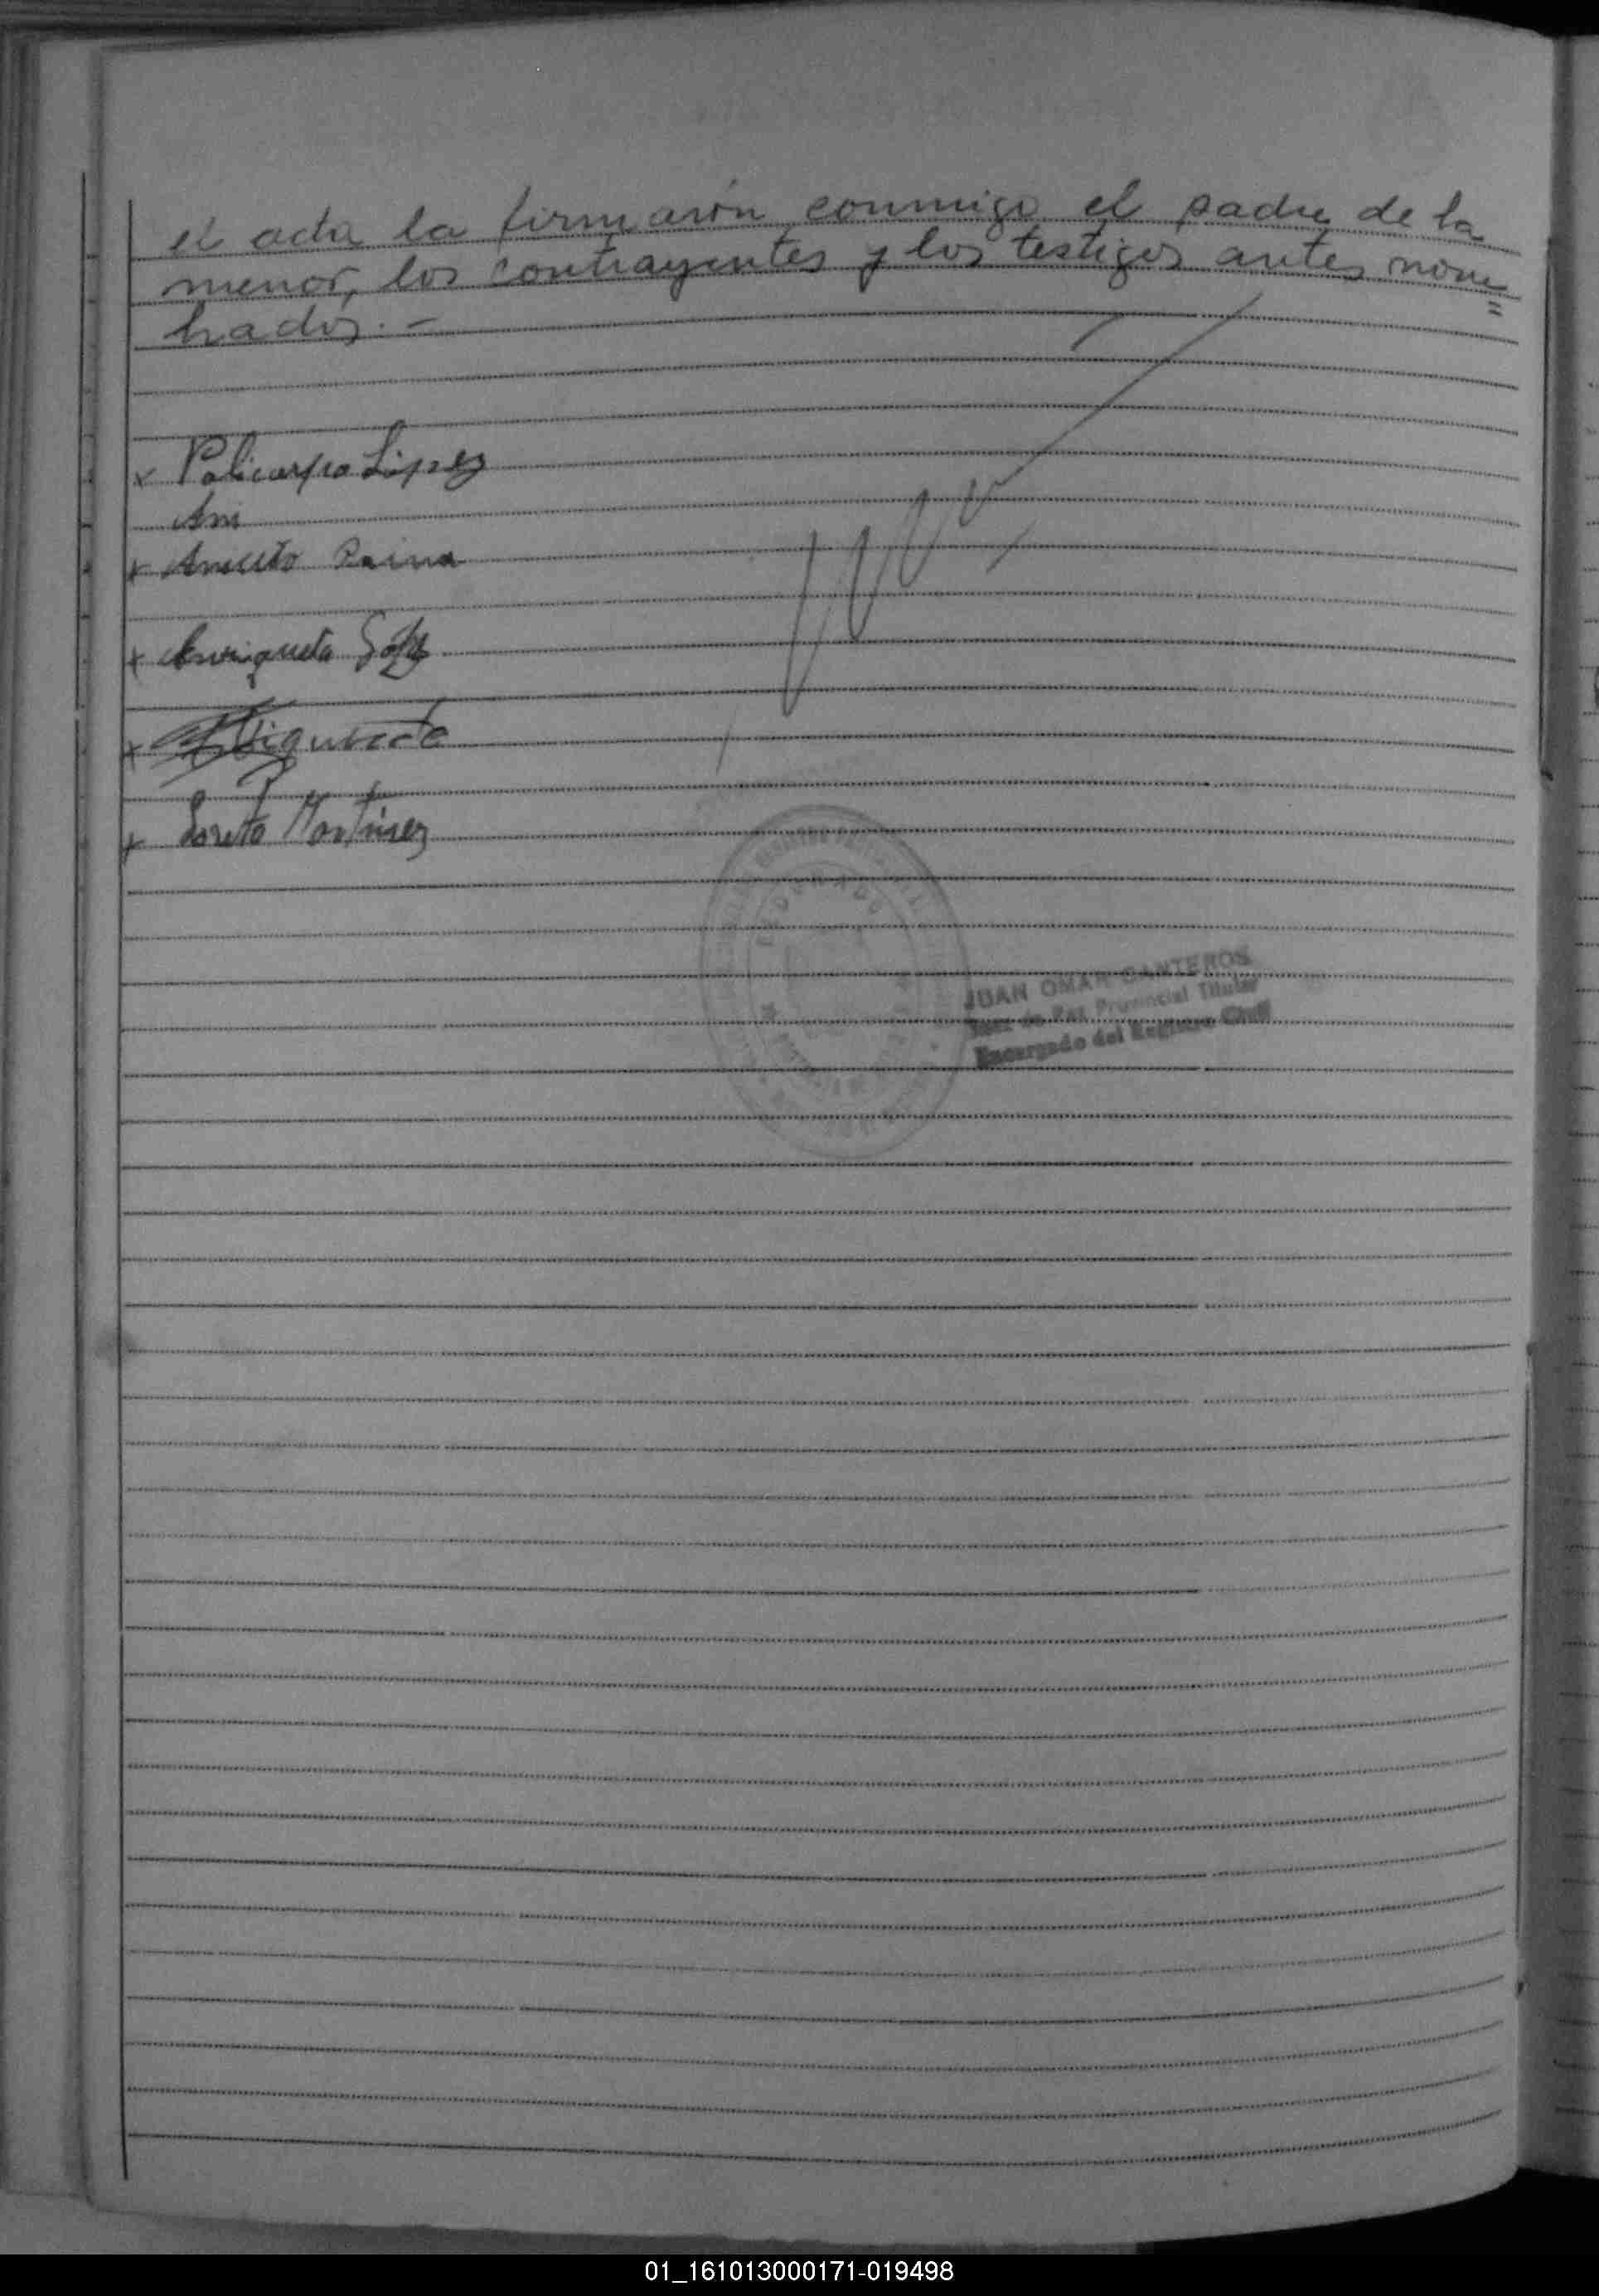 el acta la firmarón conmigo el padre de la
menor, los contrayentes y los testigos antes nom=
brados.-
x Policarpo López
Ani
x Aniceto
x Enriqueta
x
x Loreto Martinez
JUAN OMAR CANTEROS
Juez de Paz Provincial Titular
Encargado del Registro Civil
01_161013000171-019498